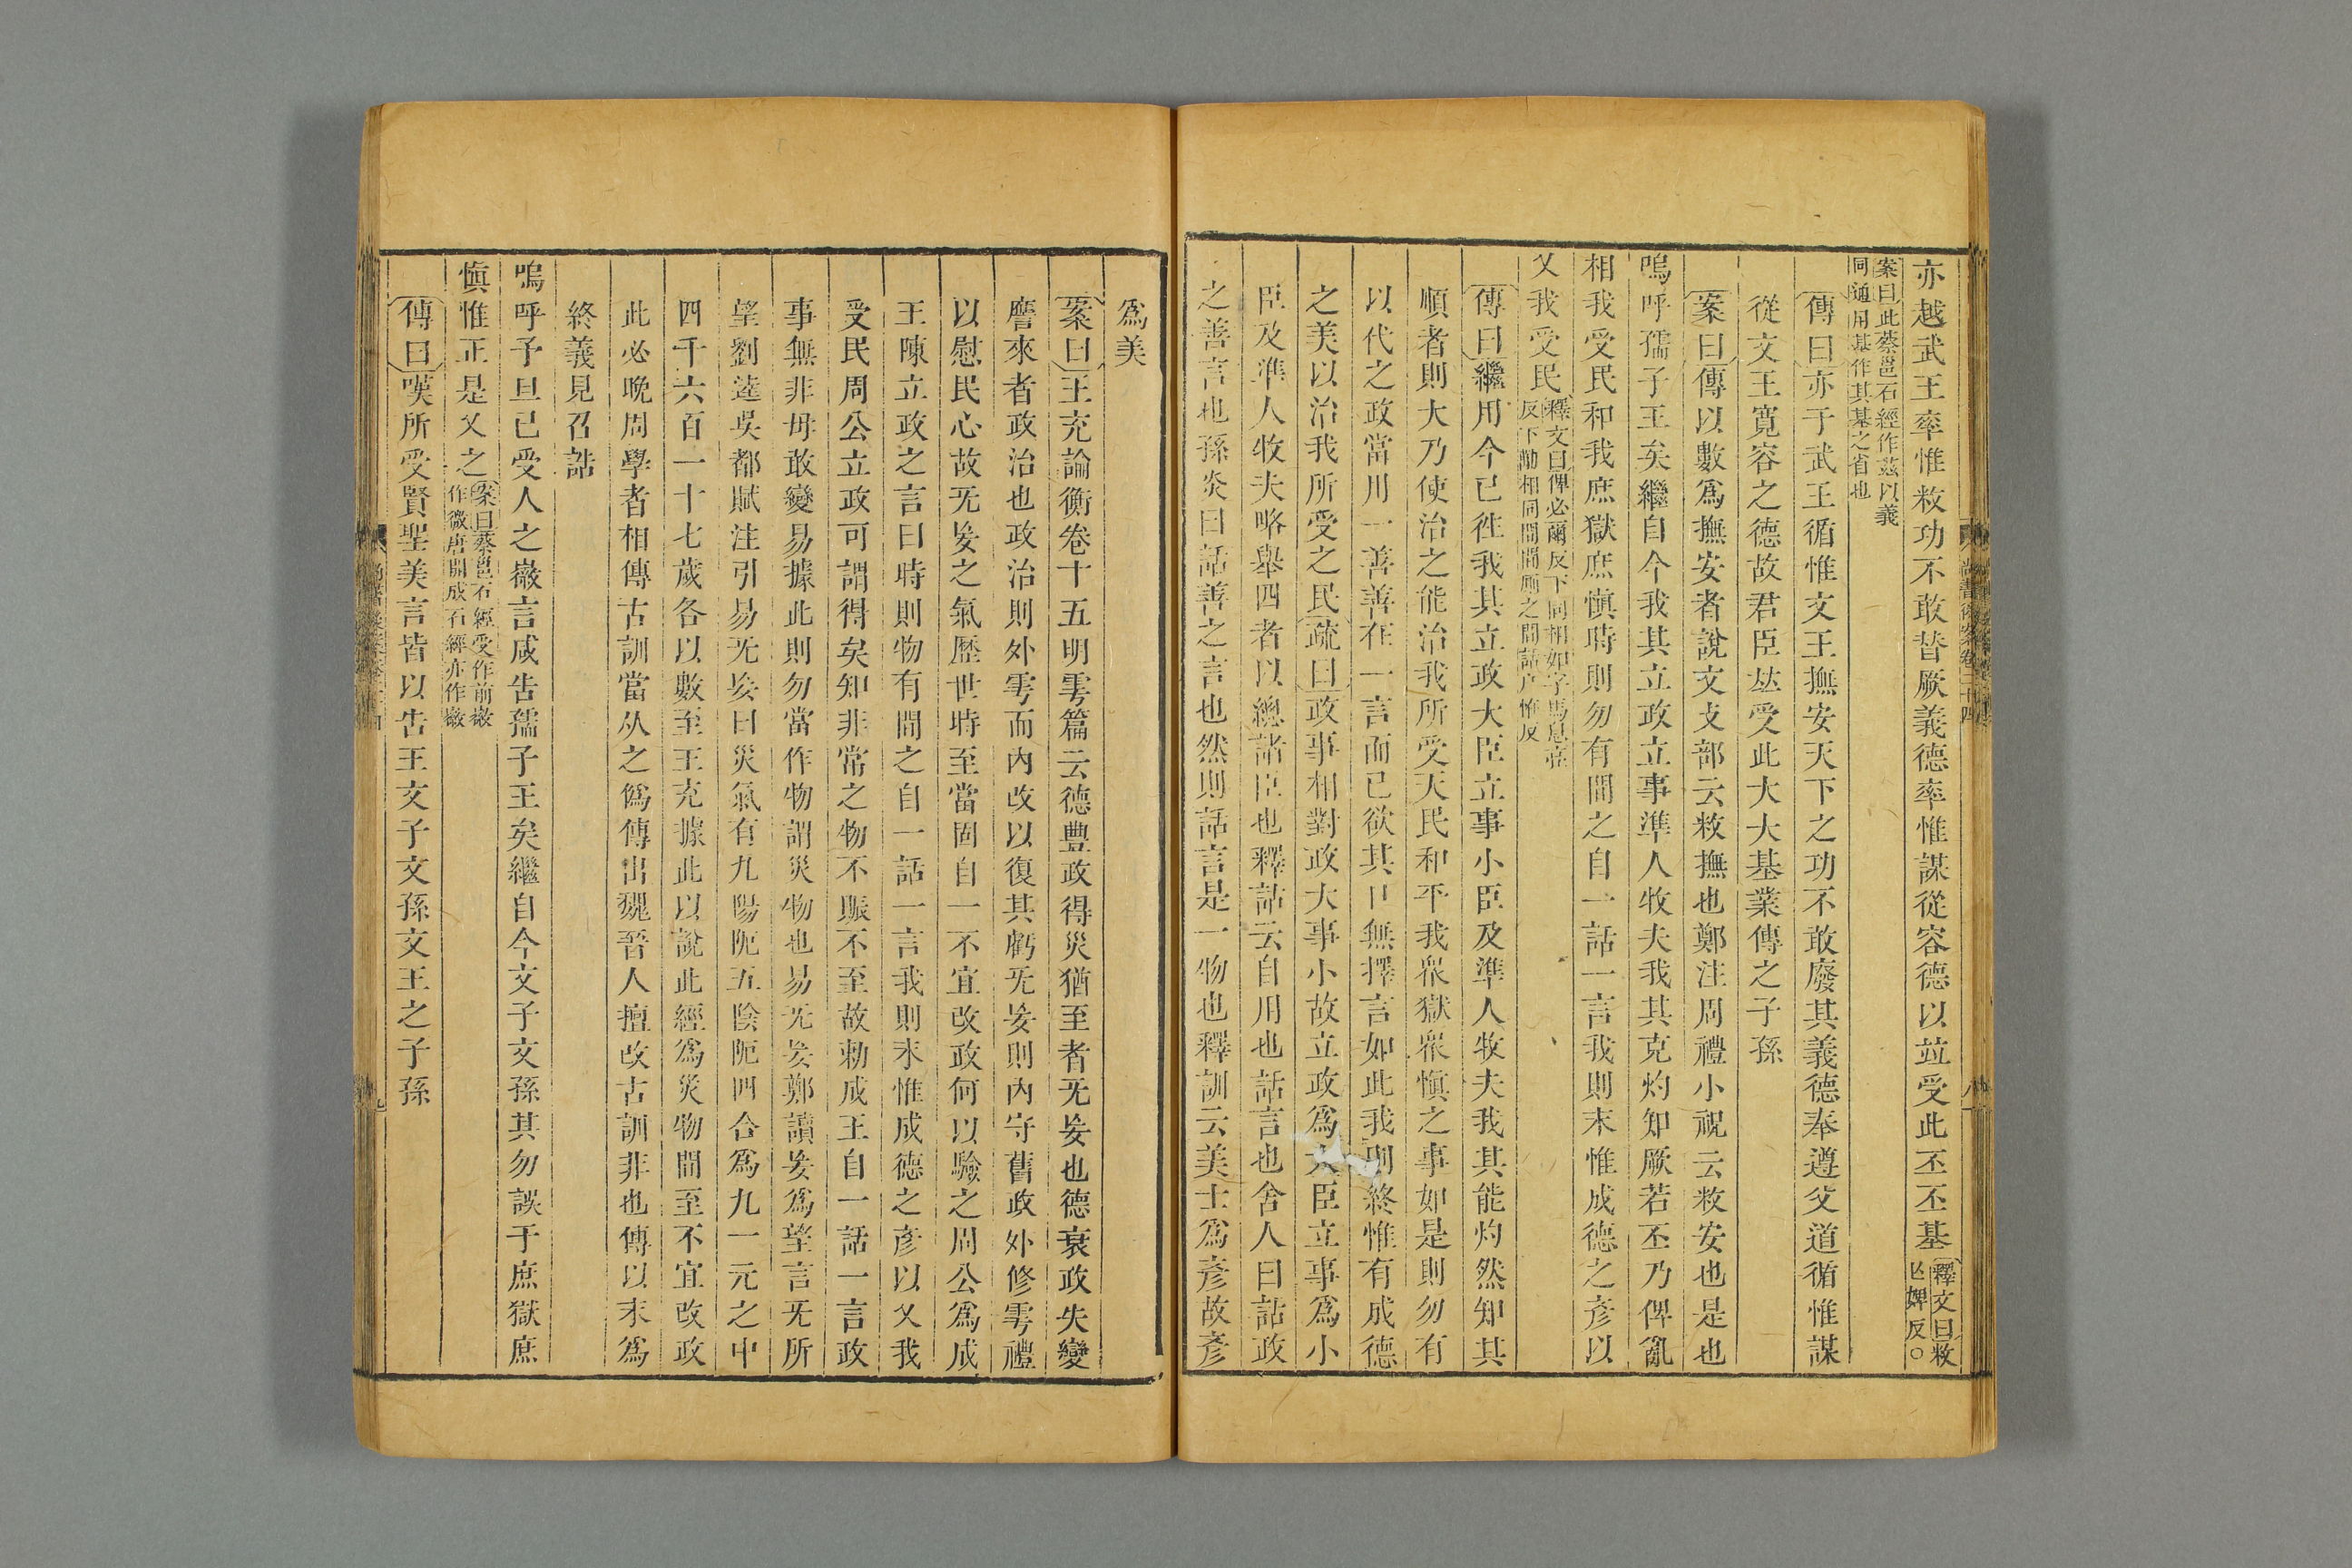 亦越武王率惟敉功不敢替厥義德率惟謀從容德以竝受此丕丕基釋文曰敉亡婢反○
案曰此蔡邕石經作茲以義同通用基作其基之省也
傳曰亦于武王循惟文王撫安天下之功不敢廢其義德奉遵父道循惟謀
從文王寬容之德故君臣竝受此大大基業傳之子孫
案曰傳以數爲撫安者說文攴部云敉撫也鄭注周禮小祝云敉安也是也
嗚呼孺子王矣繼自今我其立政立事準人牧夫我其克灼知厥若丕乃俾亂
相我受民和我庶獄庶愼時則勿有間之自一話一言我則末惟成德之彥以
乂我受民釋文曰俾必爾反下同相如字馬息亮反下勱相同間間厠之間話戶快反
傳曰繼用今已往我其立政大臣立事小臣及準人牧夫我其能灼然知其
順者則大乃使治之能治我所受天民和平我眾獄眾愼之事如是則勿有
以代之政當用一善善在一言而已欲其口無擇言如此我則終惟有成德
之美以治我所受之民疏曰政事相對政大事小故立政爲大臣立事爲小
臣及準人牧夫略舉四者以總諸臣也釋詁云自用也話言也舍人曰話政
之善言也孫炎曰話善之言也然則話言是一物也釋訓云美士爲彥故彥
爲美
案曰王充論衡卷十五明雩篇云德豐政得災猶至者无妄也德衰政失變
譍來者政治也政治則外雩而內改以復其虧无妄則內守舊政外修雩禮
以慰民心故无妄之氣歷世時至當固自一不宜改政何以驗之周公爲成
王陳立政之言曰時則物有間之自一話一言我則末惟成德之彥以乂我
受民周公立政可謂得矣知非常之物不賑不至故勅成王自一話一言政
事無非毋敢變易據此則勿當作物謂災物也易无妄鄭讀妄爲望言无所
望劉逵吳都賦注引易无妄曰災氣有九陽阨五陰阨四合爲九一元之中
四千六百一十七歲各以數至王充據此以說此經爲災物間至不宜改政
此必晚周學者相傳古訓當从之僞傳出魏晉人擅改古訓非也傳以末爲
終義見召誥
嗚呼予旦已受人之徽言咸告孺子王矣繼自今文子文孫其勿誤于庶獄庶
愼惟正是乂之案曰蔡邕石經受作前徽作微唐開成石經亦作徽
傳曰嘆所受賢聖美言皆以告王文子文孫文王之子孫